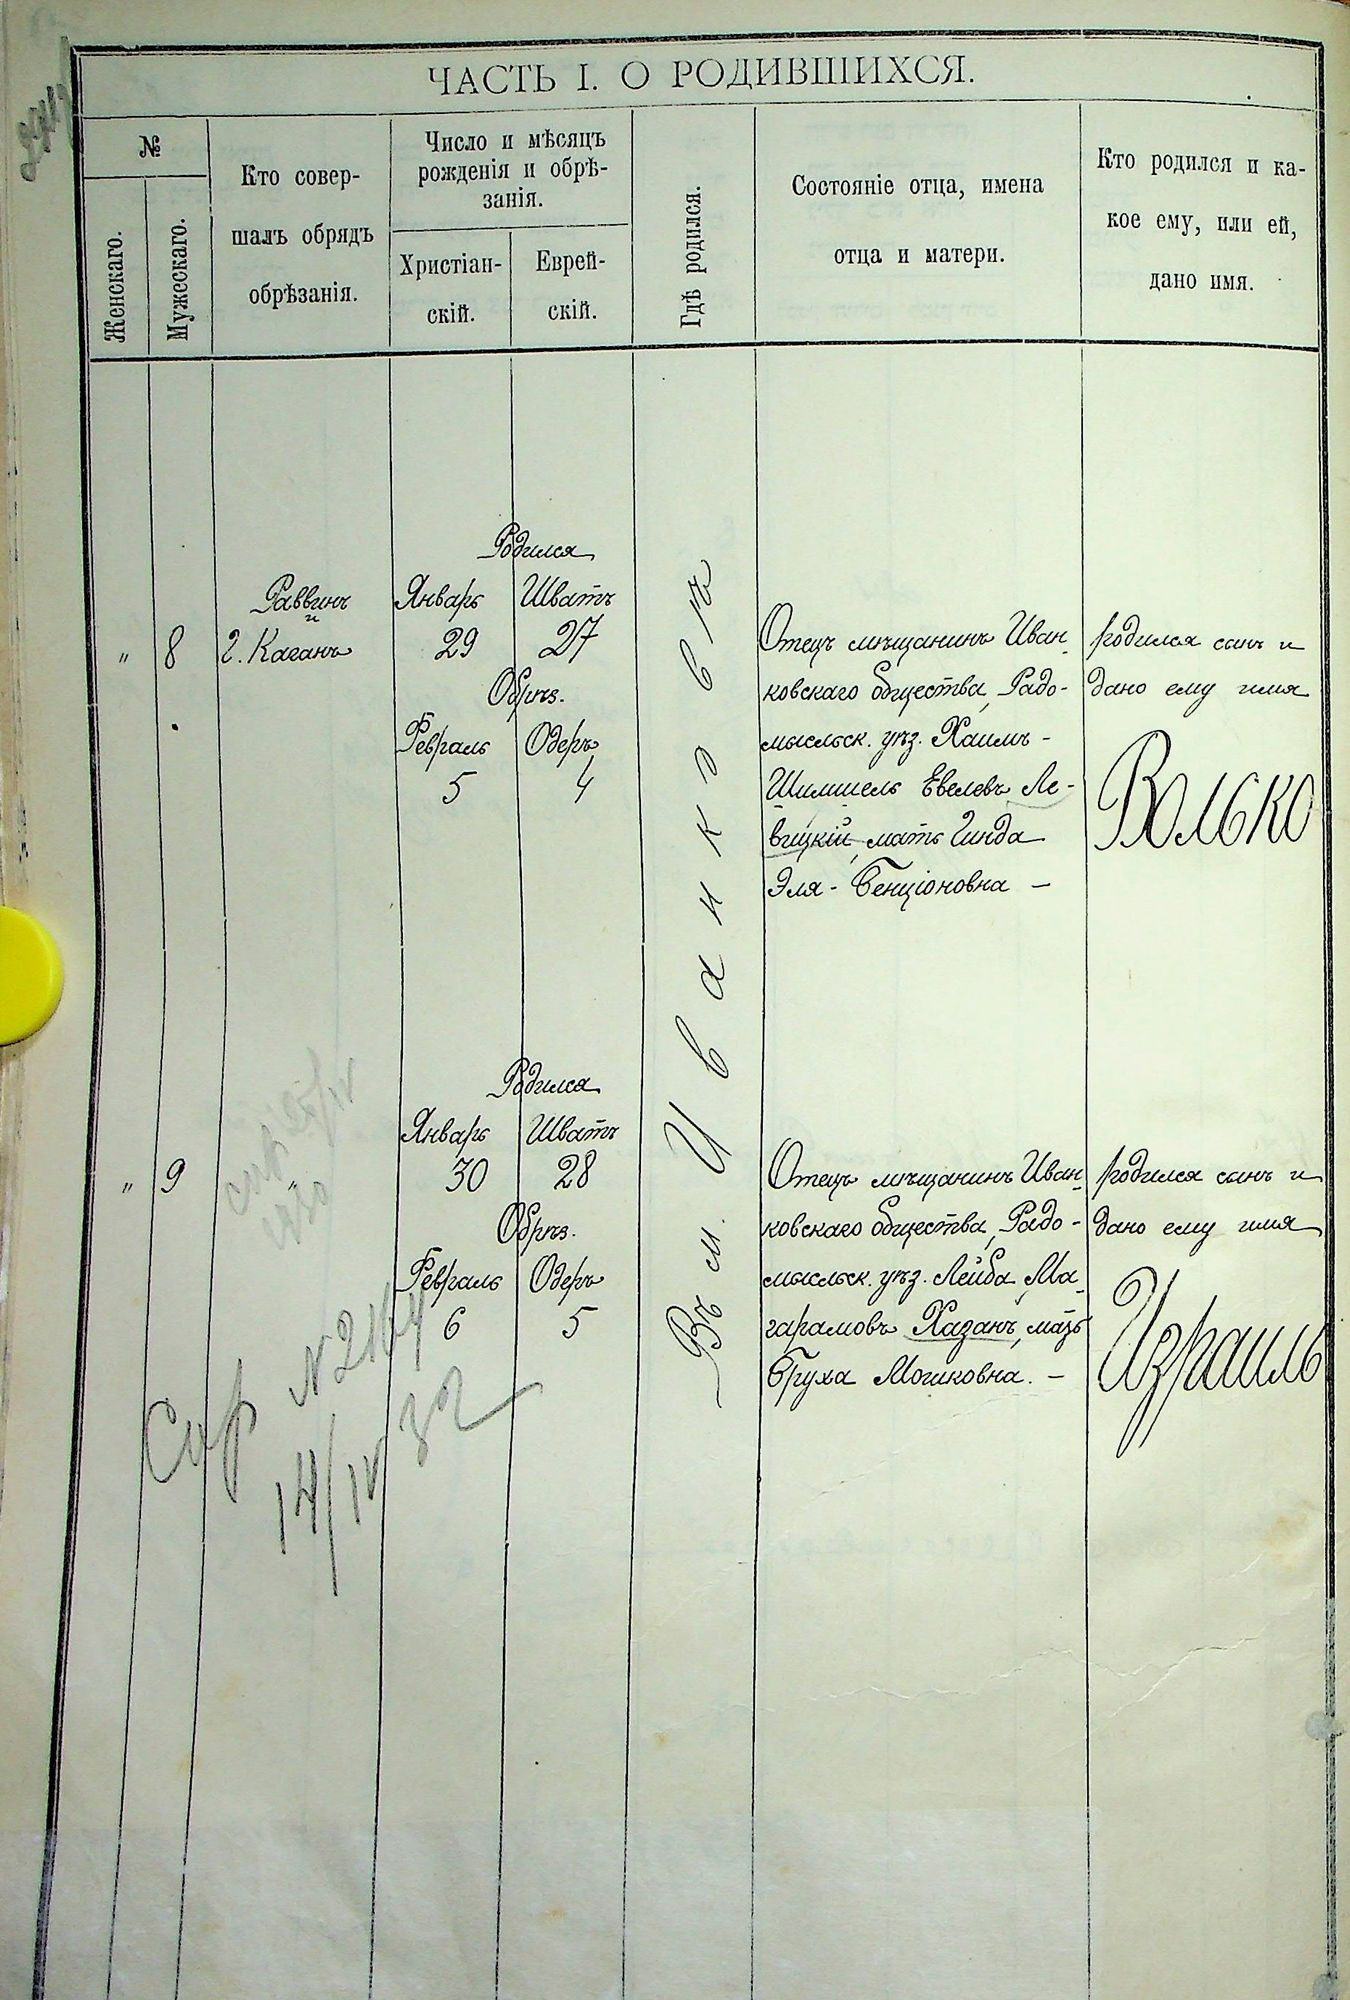 ЧАСТЬ I. О РОДИВШИХСЯ.
№
Женскаго.
Мужескаго.
Кто совер-
шалъ обрядъ
обрѣзанія.
Число и мѣсяцъ
рожденія и обрѣ-
занія.
Христіан-
скій.
Еврей-
скій.
Гдѣ родился.
Состояніе отца, имена
отца и матери.
Кто родился и ка-
кое ему, или ей,
дано имя.
„ 8
Раввинъ
и
г. Каганъ
Родился
Январь Шватъ
29 27
Обрѣз.
Февраль Одеръ
5 4
Въ м. Иванковѣ
Отецъ мѣщанинъ Иван-
ковскаго общества, Радо-
мысльск. уѣз. Хаимъ-
Шимшель Евелевъ Ле-
вицкій, мать Гинда
Эля-Бенціоновна —
родился сынъ и
дано ему имя
Волько
„ 9
„
Родился
Январь Шватъ
30 28
Обрѣз.
Февраль Одеръ
6 5
Отецъ мѣщанинъ Иван-
ковскаго общества, Радо-
мысльск. уѣз. Лейба Ма-
гарамовъ Хазанъ, мать
Бруха Мошковна. —
родился сынъ и
дано ему имя
Израиль
Спр № 2164
14/IV 32